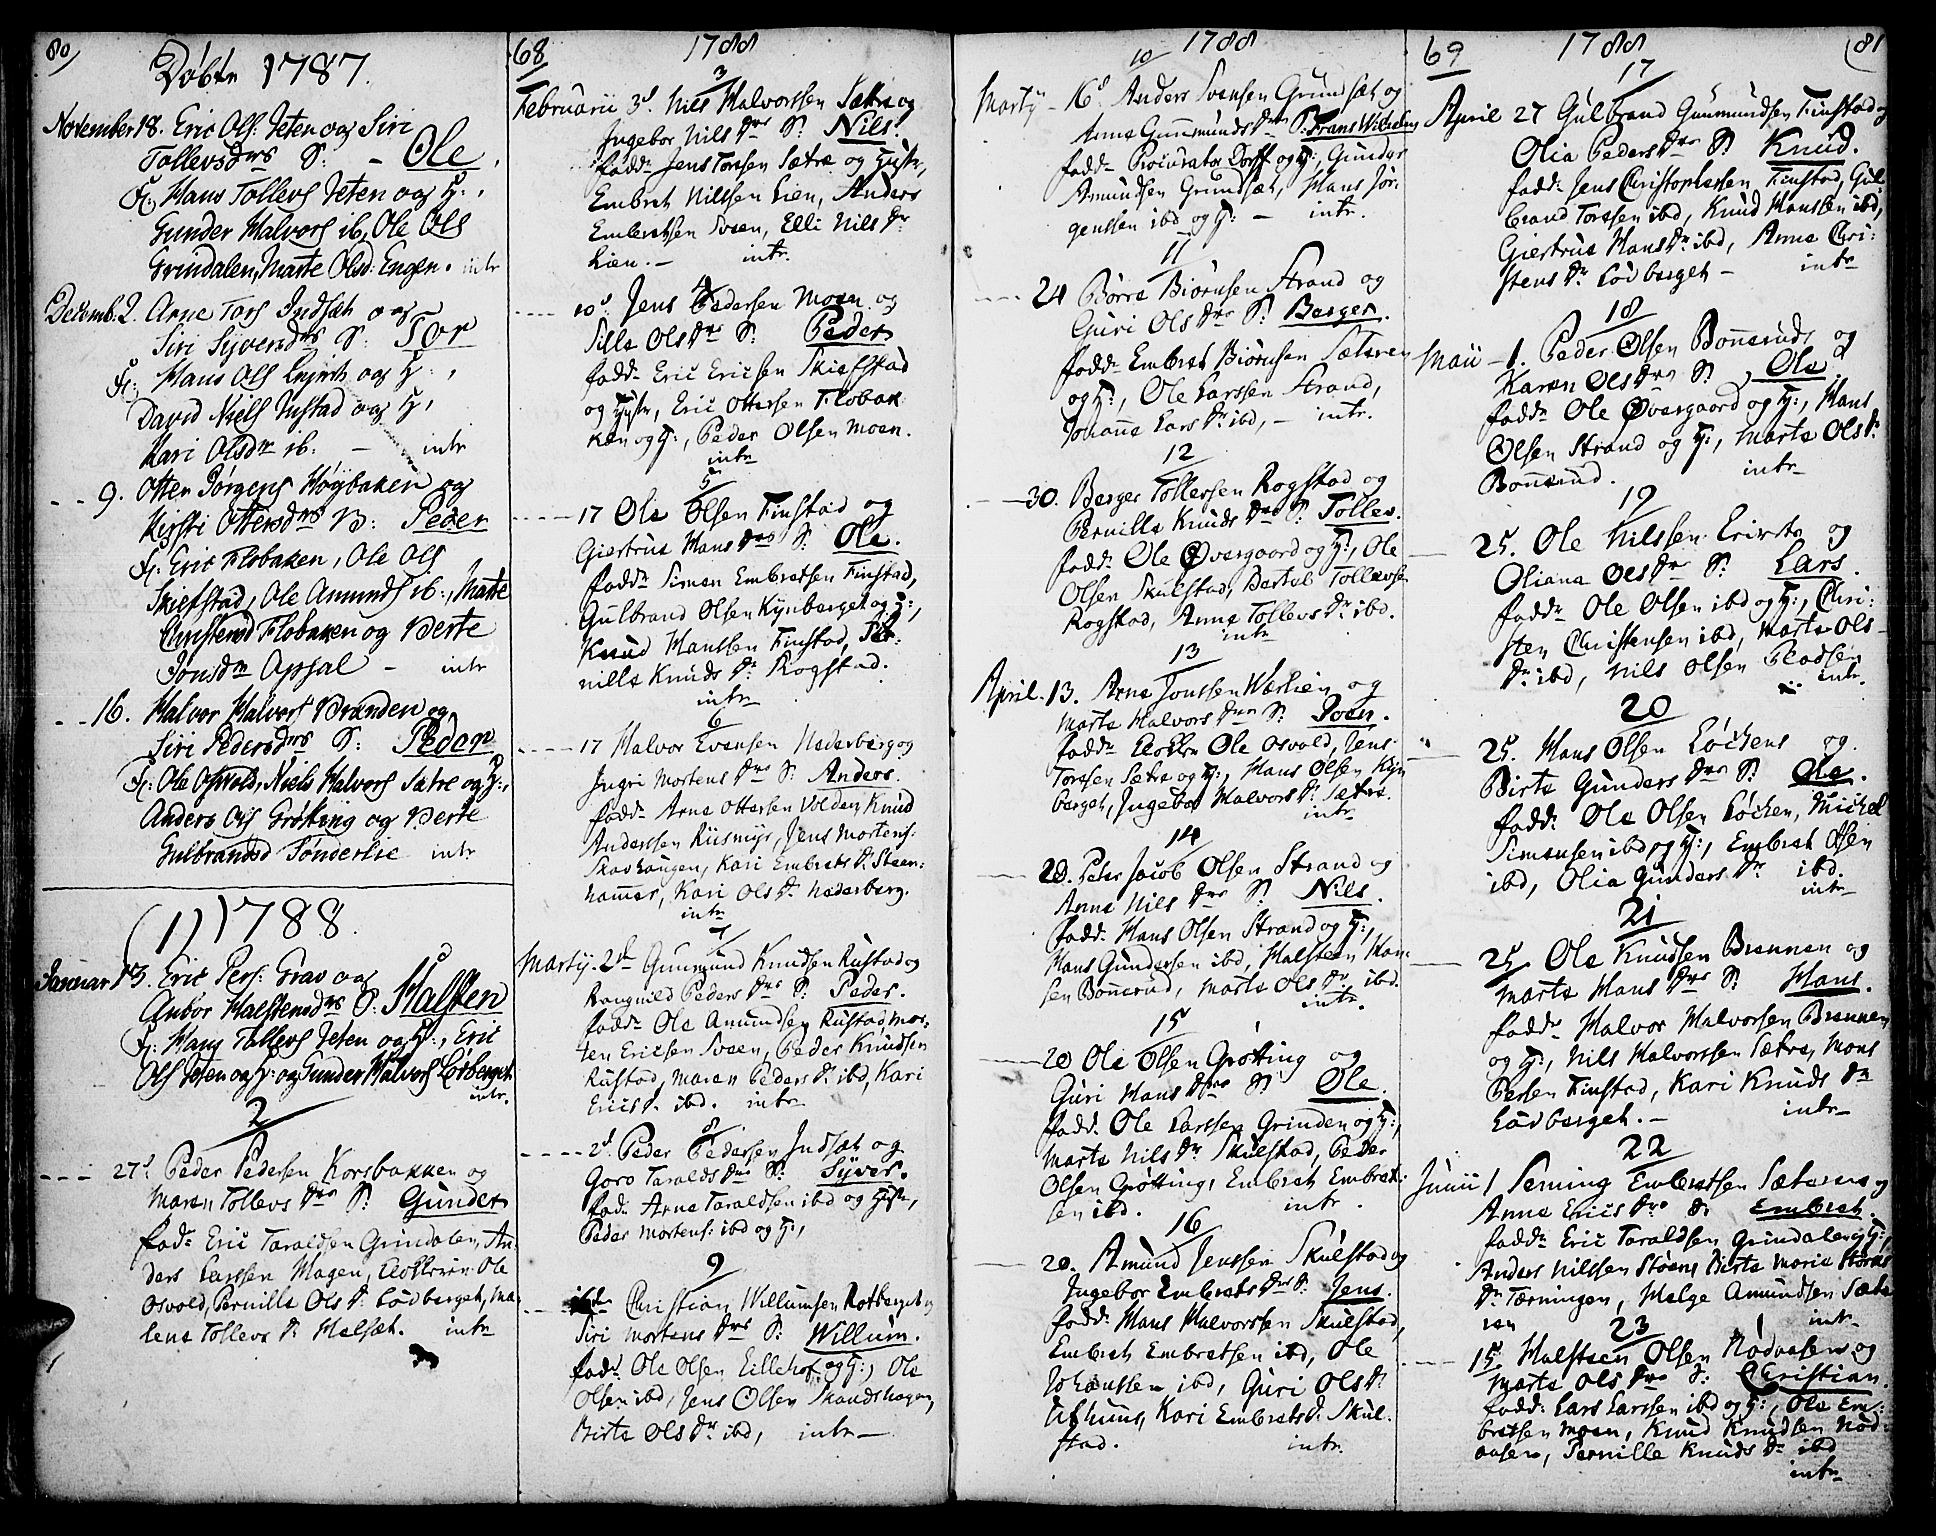 80
Döbte 1787.
November 18. Eric Ols: Jeten og Siri
Tollevsdrs S: - Ole.
F: Hans Tollevs Jeten og H:,
Gunder Halvors ib, Ole Ols
Grindalen, Marte Olsd: Engen. intr
Decemb. 2. Arne Tors Indsæt og
Siri Syversdrs S: Tor
F: Hans Ols og H:,
David Niels Justad og H,
Kari Olsdr ib. - intr
--- 9. Otter Jörgens Höybaken og
Kirsti Ottersdrs B: Peder
F: Eric Flobaken, Ole Ols
Skiefstad, Ole Amunds ib:, Marte
Christensd Flobaken og Berte
Jonsdr Opsal - intr
--- 16. Halvor Halvors Brænden og
Siri Pedersdrs S: Peder
F: Ole Oswold, Niels Halvors Sætre og H:,
Anders Ols Gröting og Berte
Gulbrandsd Sönderlie intr
(1) 1788.
Januar 13. Eric Pers: Grav og
Anbor Halstensdrs S: Halsten
F: Hans Tollevs Jeten og H:, Eric
Ols Jeten og H: og Gunder Halvors Lörberget
intr.
2
--- 27d Peder Pedersen Korsbakken og
Maren Tollevs Drs S: Gunder
fad: Eric Taraldsen Grindalen, An-
ders Larssen Hagen, Klokkeren Ole
Osvold, Pernille Ols Dr Lödberget, Ma-
lene Tollevs Dr Helsæt. intr
68
1788
3
Februarii 3d. Nils Halvorssen Sætre og
Ingebor Nils Drs S: Nils.
fadd: Jens Torssen Sætre og Hustr,
Embret Nilssen Lien, Anders
Embretsen Sveen, Elli Nils Dr
Lien. - intr.
4
---- 10d. Jens Pedersen Moen og
Sille Ols Drs S: Peder
fadd: Eric Ericsen Skiefstad
og Hustr, Eric Ottersen Flobak-
ken og H:, Peder Olsen Moen.
intr
5
---- 17 Ole Olsen Finstad og
Giertrue Hans Drs S: Ole.
fadd: Simen Embretsen Finstad,
Gulbrand Olsen Kynberget og H:,
Knud Hanssen Finstad, Per-
nille Knuds Dr Rogstad.
intr
6
---- 17 Halvor Evensen Nederberg og
Ingri Mortens Drs S: Anders.
fadd: Arne Ottersen Volden, Knud
Anderssen Riismyr, Jens Mortens:
Skavhougen, Kari Embrets Dr Steen-
hamer, Kari Ols Dr Nederberg.
intr
7
Martij. 2d Gunmund Knudsen Rustad og
Rangnild Peders Drs S: Peder.
fadd: Ole Amundsen Rustad, Mor-
ten Ericsen Sveen, Peder Knudsen
Rustad, Maren Peders Dr ibd, Kari
Erics Dr ibd. intr
8
---- 2d. Peder Pedersen Indsæt og
Goro Taralds Drs S: Syver.
fad: Arne Taraldsen ibd og Hustr,
Peder Mortens: ibd og H:,
9
Christian Willumsen Rotberget og
Siri Mortens Drs S: Willum.
fad: Ole Olsen Lillehof og H:, Ole
Olsen ibd, Jens Olsen Skandshagen,
Birte Ols Dr ibd, intr
1788
10
Martij - 16d Anders Svensen Grundsæt og
Anne Gunmunds Drs S: Frans Wilhelm
fadd: Procurator Dorff og H:, Gunder
Amundsen Grundsæt, Hans Jör-
genssen ibd og H: - intr.
11
---- 24 Börre Biörnsen Strand og
Guri Ols Drs S: Berger.
fadd: Embret Biörnsen Sæteren
og H:, Ole Larssen Strand,
Johanne Lars Dr ibd, - intr.
12
---- 30. Berger Tollefsen Rogstad og
Pernille Knuds Drs S: Tollev.
fadd: Ole Övergaard og H:, Ole
Olsen Skulstad, Bertel Tollevse
Rogstad, Anne Tollevs Dr ibd.
intr
13
April. 13. Arne Jonssen Wæslien og
Marte Halvors Drs S: Iven.
fadd: Klokkr Ole Osvold, Jens
Torssen Sætre og H:, Hans Olsen Kyn
berget, Ingebor Halvors Dr Sætre.
intr
14
---- 20. Peter Jacob Olsen Strand og
Anne Nils Drs S: Nils.
fadd: Hans Olsen Strand og H:,
Hans Gundersen ibd, Halsteen Han-
sen Bönnerud, Marte Ols Dr ibd.
intr.
15
---- 20 Ole Olsen Grötting og
Guri Hans Drs S: Ole.
fadd: Ole Larssen Grinden og H:,
Marte Nils Dr Skulstad, Peder
Olsen Grötting, Embret Embret-
sen ibd. intr.
16
---- 20. Amund Jenssen Skulstad og
Ingebor Embrets Drs S: Jens.
fadd: Hans Halvorssen Skulstad,
Embret Embretsen ibd, Ole
Johanssen ibd, Guri Ols Dr
Ufhuus, Kari Embrets Dr Skul-
stad. intr.
69
1788
81
17
April 27 Gulbrand Gunmundsen Finstad og
Olia Peders Drs S: Knud.
fadd: Jens Christophersen Finstad, Gul-
brand Torssen ibd, Knud Hanssen ibd,
Giertrue Hans Dr ibd, Anne Chri-
stens Dr Lödberget - intr
18
Maii - 1. Peder Olsen Bönnerud og
Karen Ols Drs S: Ole.
fadd: Ole Övergaard og H:, Hans
Olsen Strand og H:, Marte Ols Dr
Bönnerud. intr
19
---- 25. Ole Nilssen og
Oliana Ols Dr S: Lars.
fadd: Ole Olsen ibd og H:, Chri-
sten Christensen ibd, Marte Ols
Dr ibd, Nils Olsen Plodsen
intr.
20
---- 25. Hans Olsen Löchens og
Birte Gunders Drs S: Ole.
fadd: Ole Olsen Löchen, Michel
Simensen ibd og H:, Embret Olsen
ibd, Olia Gunders Dr ibd.
intr
21
---- 25 Ole Knudsen Brennen og
Marte Hans Drs S: Hans.
fadd: Halvor Halvorsen Brennen
og H:, Nils Halvorssen Sætre, Mons
Persen Finstad, Kari Knuds Dr
Lödberget. - intr
22
Junii 1 Sening Embretsen Sæteren og
Anne Erics Drs S: Embret.
fadd: Eric Taraldsen Grindalen og H:,
Anders Nilssen Stöens, Birte Marie Störes
Dr Terningen, Helge Amundsen Sæte
ren intr
23
---- 15. Halsteen Olsen Nödaasen og
Marte Ols Drs S: Christian.
fadd: Lars Larssen ibd og H:, Ole Em-
bretsen Moen, Knud Knudsen Nöd-
aasen, Pernille Knuds Dr ibd
intr